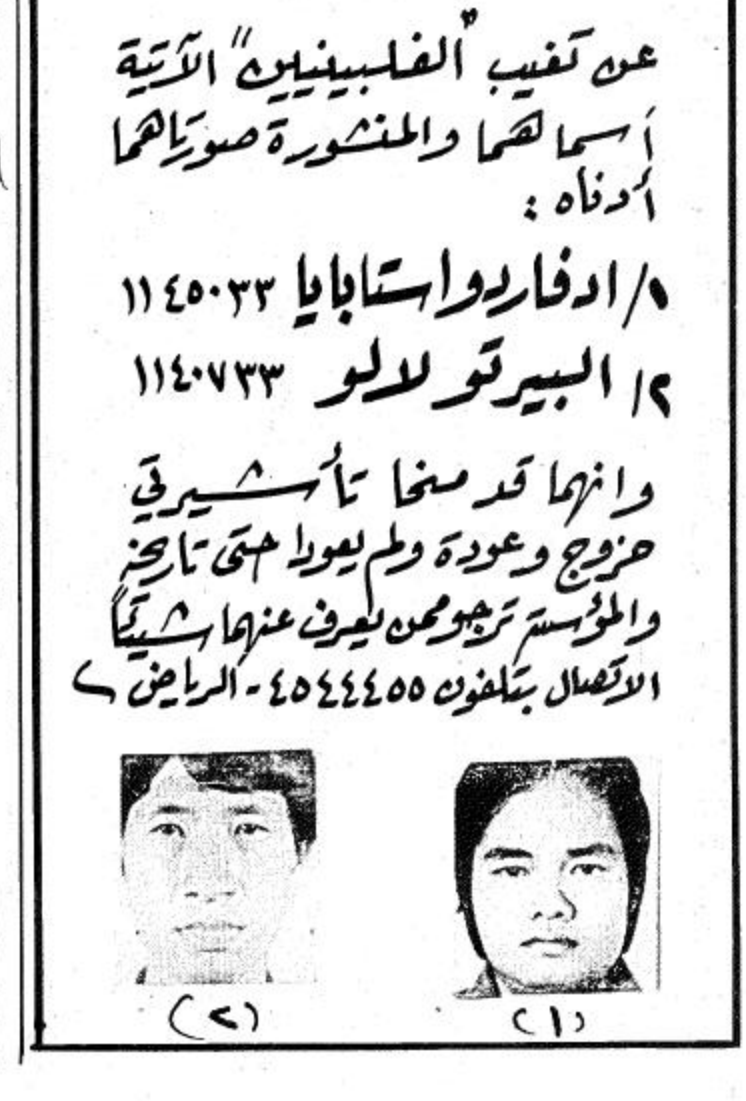 عن تغيب "الفلبينيين" الآتية
أسماهما والمنشورة صورتاهما
أدناه :
١/ ادفاردو استابايا ١١٤٥٠٣٣
٢/ البيرتو لالو ١١٤٠٧٣٣
وانهما قد منحا تأشيرتي
خروج وعودة ولم يعودا حتى تاريخه
والمؤسسة ترجو ممن يعرف عنهما شيئاً
الاتصال بتلفون ٤٥٤٤٤٥٥ - الرياض
(٢) (١)